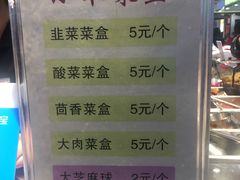 韭菜菜盒 5元/个
酸菜菜盒 5元/个
茴香菜盒 5元/个
大肉菜盒 5元/个
大芝麻球 2元/个